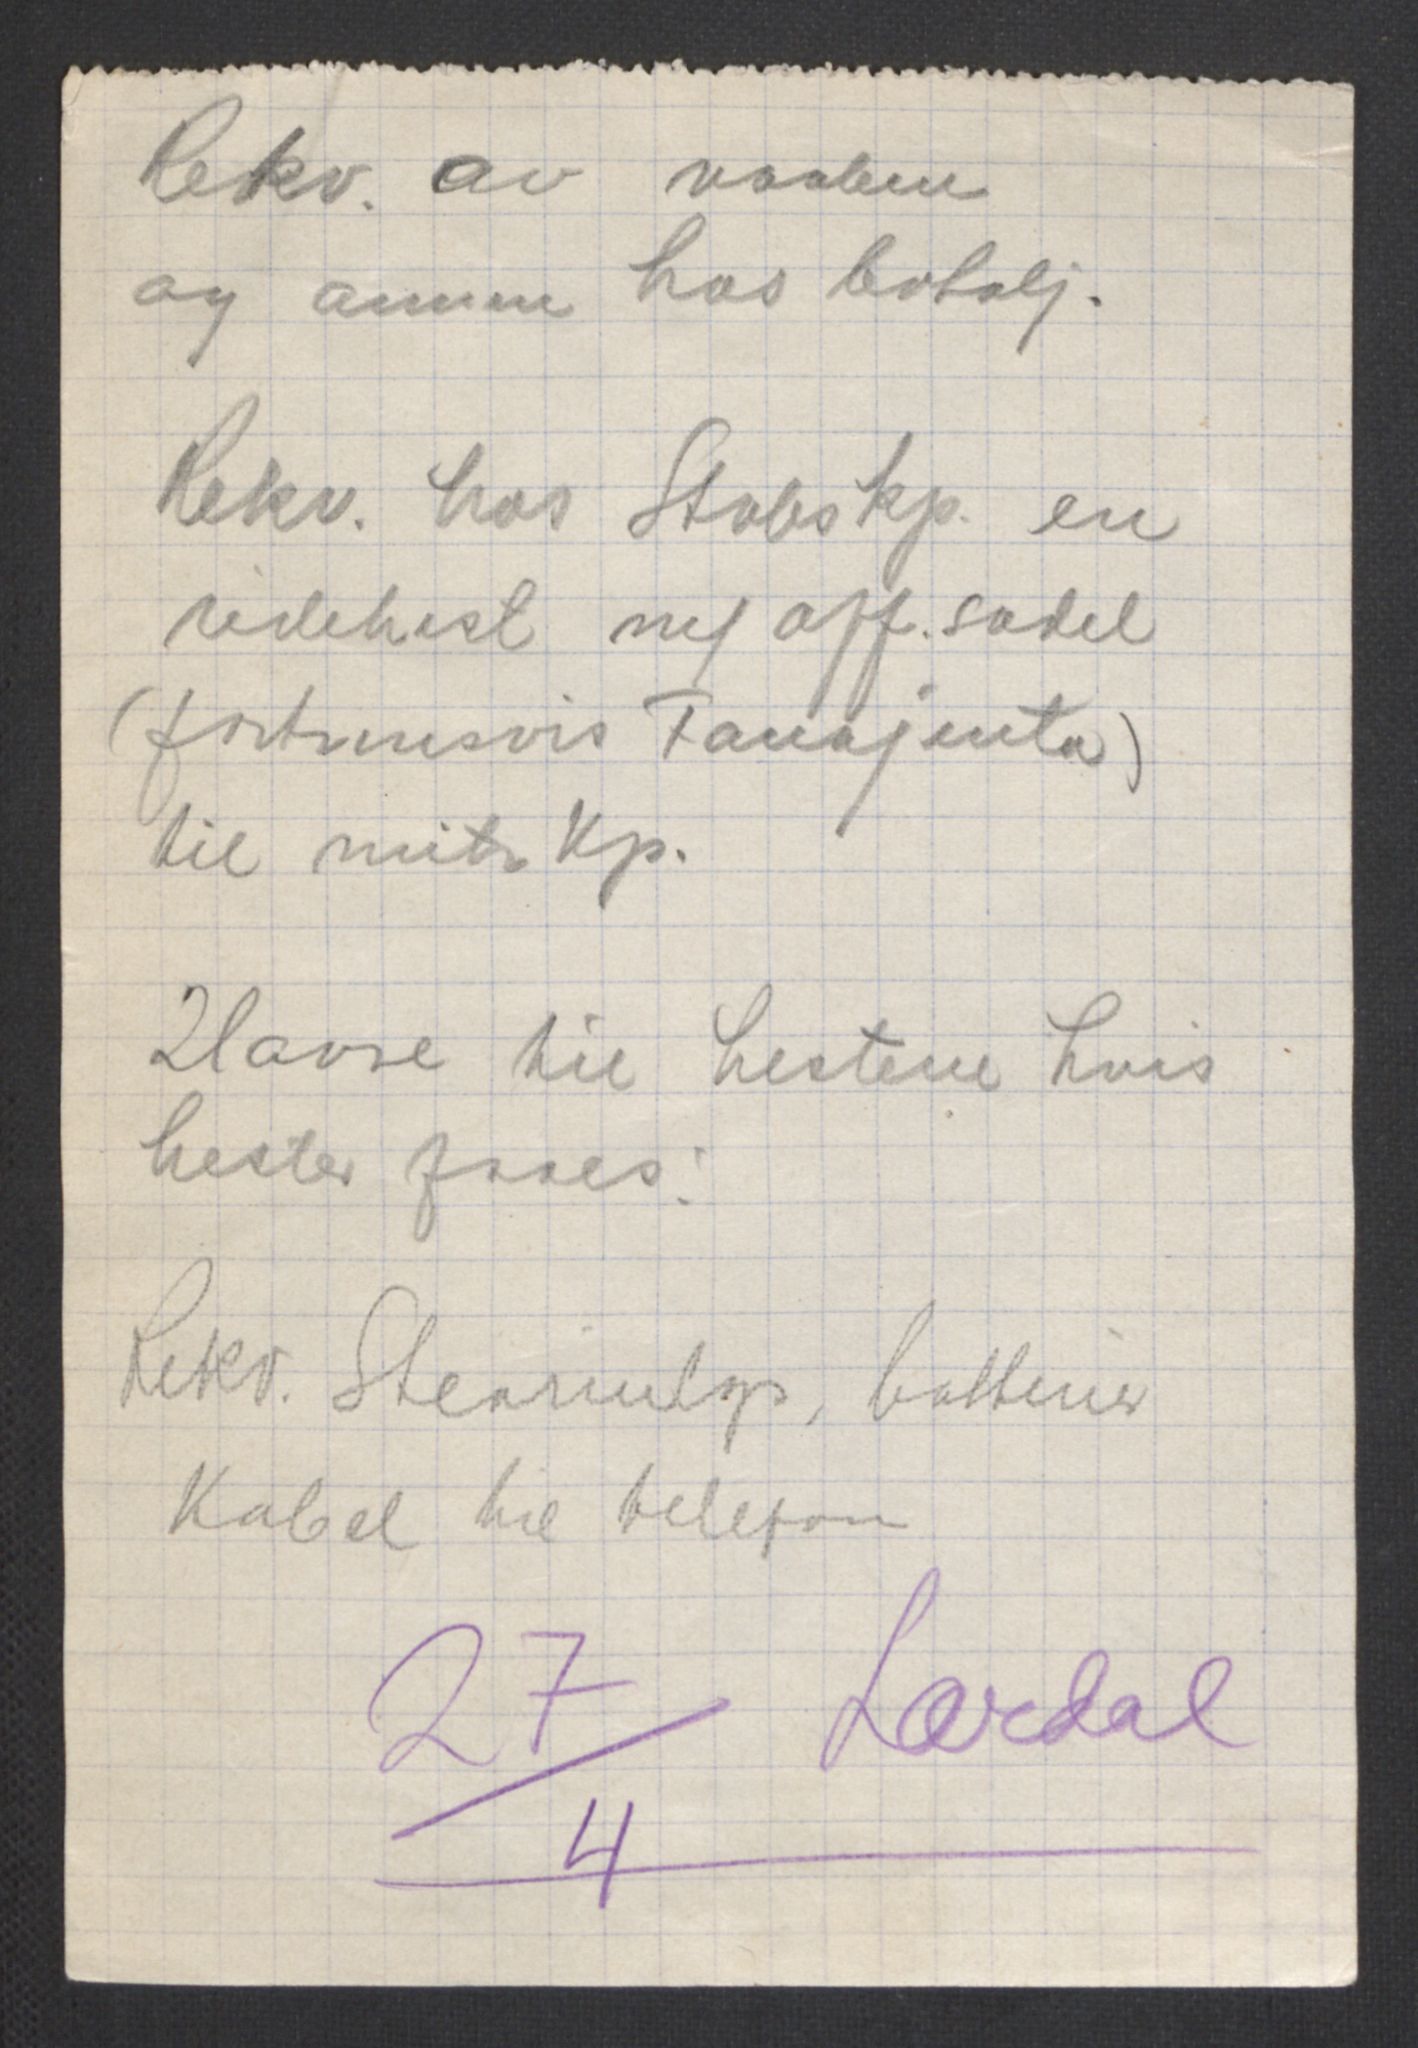 Rekv. av vaaben
og ammun hos batalj.
Rekv. hos Stabskp. en
ridehest m/ off. sadel
(fortrinsvis Fanajenta)
til mitr Kp.
Havre til hestene hvis
hester faaes:
Rekv. Stearinlys, batterier
Kabel til telefon
27/4 Lærdal